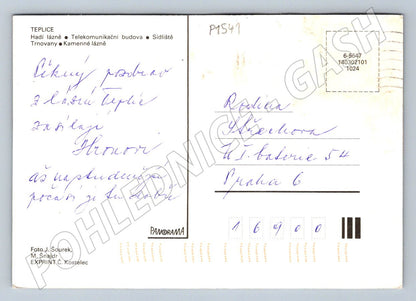 TEPLICE
Hadí lázně • Telekomunikační budova • Sídliště
Trnovany • Kamenné lázně
P1541
6-5647
140302101
1024
Pěkný pozdrav
z lázní Teplic
zasílají
Hronovi
až na studené
počasí je tu dobře
Rodina
Stžechova
Praha 6
54
1 6 9 0 0
PANORAMA
Foto J. Sourek,
M. Šnajdr
EXPRINT Č. Kostelec
POHLEDNICE - GASH